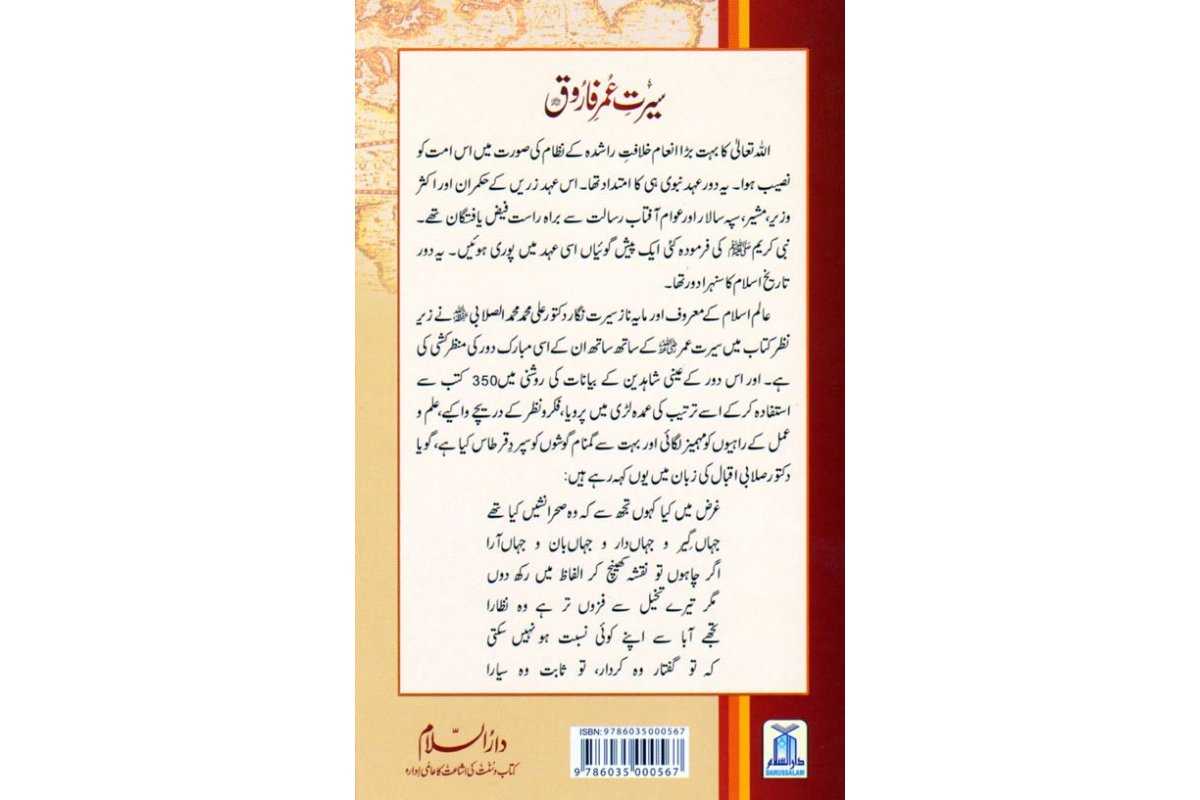 سیرتِ عُمرِ فارُوق ؓ
اللہ تعالیٰ کا بہت بڑا انعام خلافتِ راشدہ کے نظام کی صورت میں اس امت کو
نصیب ہوا۔ یہ دور عہد نبوی ہی کا امتداد تھا۔ اس عہد زریں کے حکمران اور اکثر
وزیر، مشیر، سپہ سالار اور عوام آفتاب رسالت سے براہ راست فیض یافتگان تھے۔
نبی کریم ﷺ کی فرمودہ کئی ایک پیش گوئیاں اسی عہد میں پوری ہوئیں۔ یہ دور
تاریخ اسلام کا سنہرا دور تھا۔
عالم اسلام کے معروف اور مایہ ناز سیرت نگار دکتور علی محمد محمد الصلابی ﷾ نے زیر
نظر کتاب میں سیرت عمر ؓ کے ساتھ ساتھ ان کے اسی مبارک دور کی منظر کشی کی
ہے۔ اور اس دور کے عینی شاہدین کے بیانات کی روشنی میں 350 کتب سے
استفادہ کر کے اسے ترتیب کی عمدہ لڑی میں پرویا، فکر و نظر کے دریچے وا کیے، علم و
عمل کے راہیوں کو مہمیز لگائی اور بہت سے گمنام گوشوں کو سپردِ قرطاس کیا ہے، گویا
دکتور صلابی اقبال کی زبان میں یوں کہہ رہے ہیں:
غرض میں کیا کہوں تجھ سے کہ وہ صحرا نشیں کیا تھے
جہاں گیر و جہاں دار و جہاں بان و جہاں آرا
اگر چاہوں تو نقشہ کھینچ کر الفاظ میں رکھ دوں
مگر تیرے تخیل سے فزوں تر ہے وہ نظارا
تجھے آبا سے اپنے کوئی نسبت ہو نہیں سکتی
کہ تو گفتار وہ کردار، تو ثابت وہ سیارا
دارُالسّلام
کتاب و سنّت کی اشاعت کا عالمی ادارہ
ISBN: 9786035000567
9 786035 000567
دارالسلام
DARUSSALAM